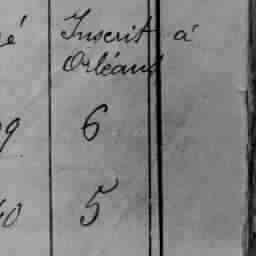 Inscrit á
Orléans
6
5